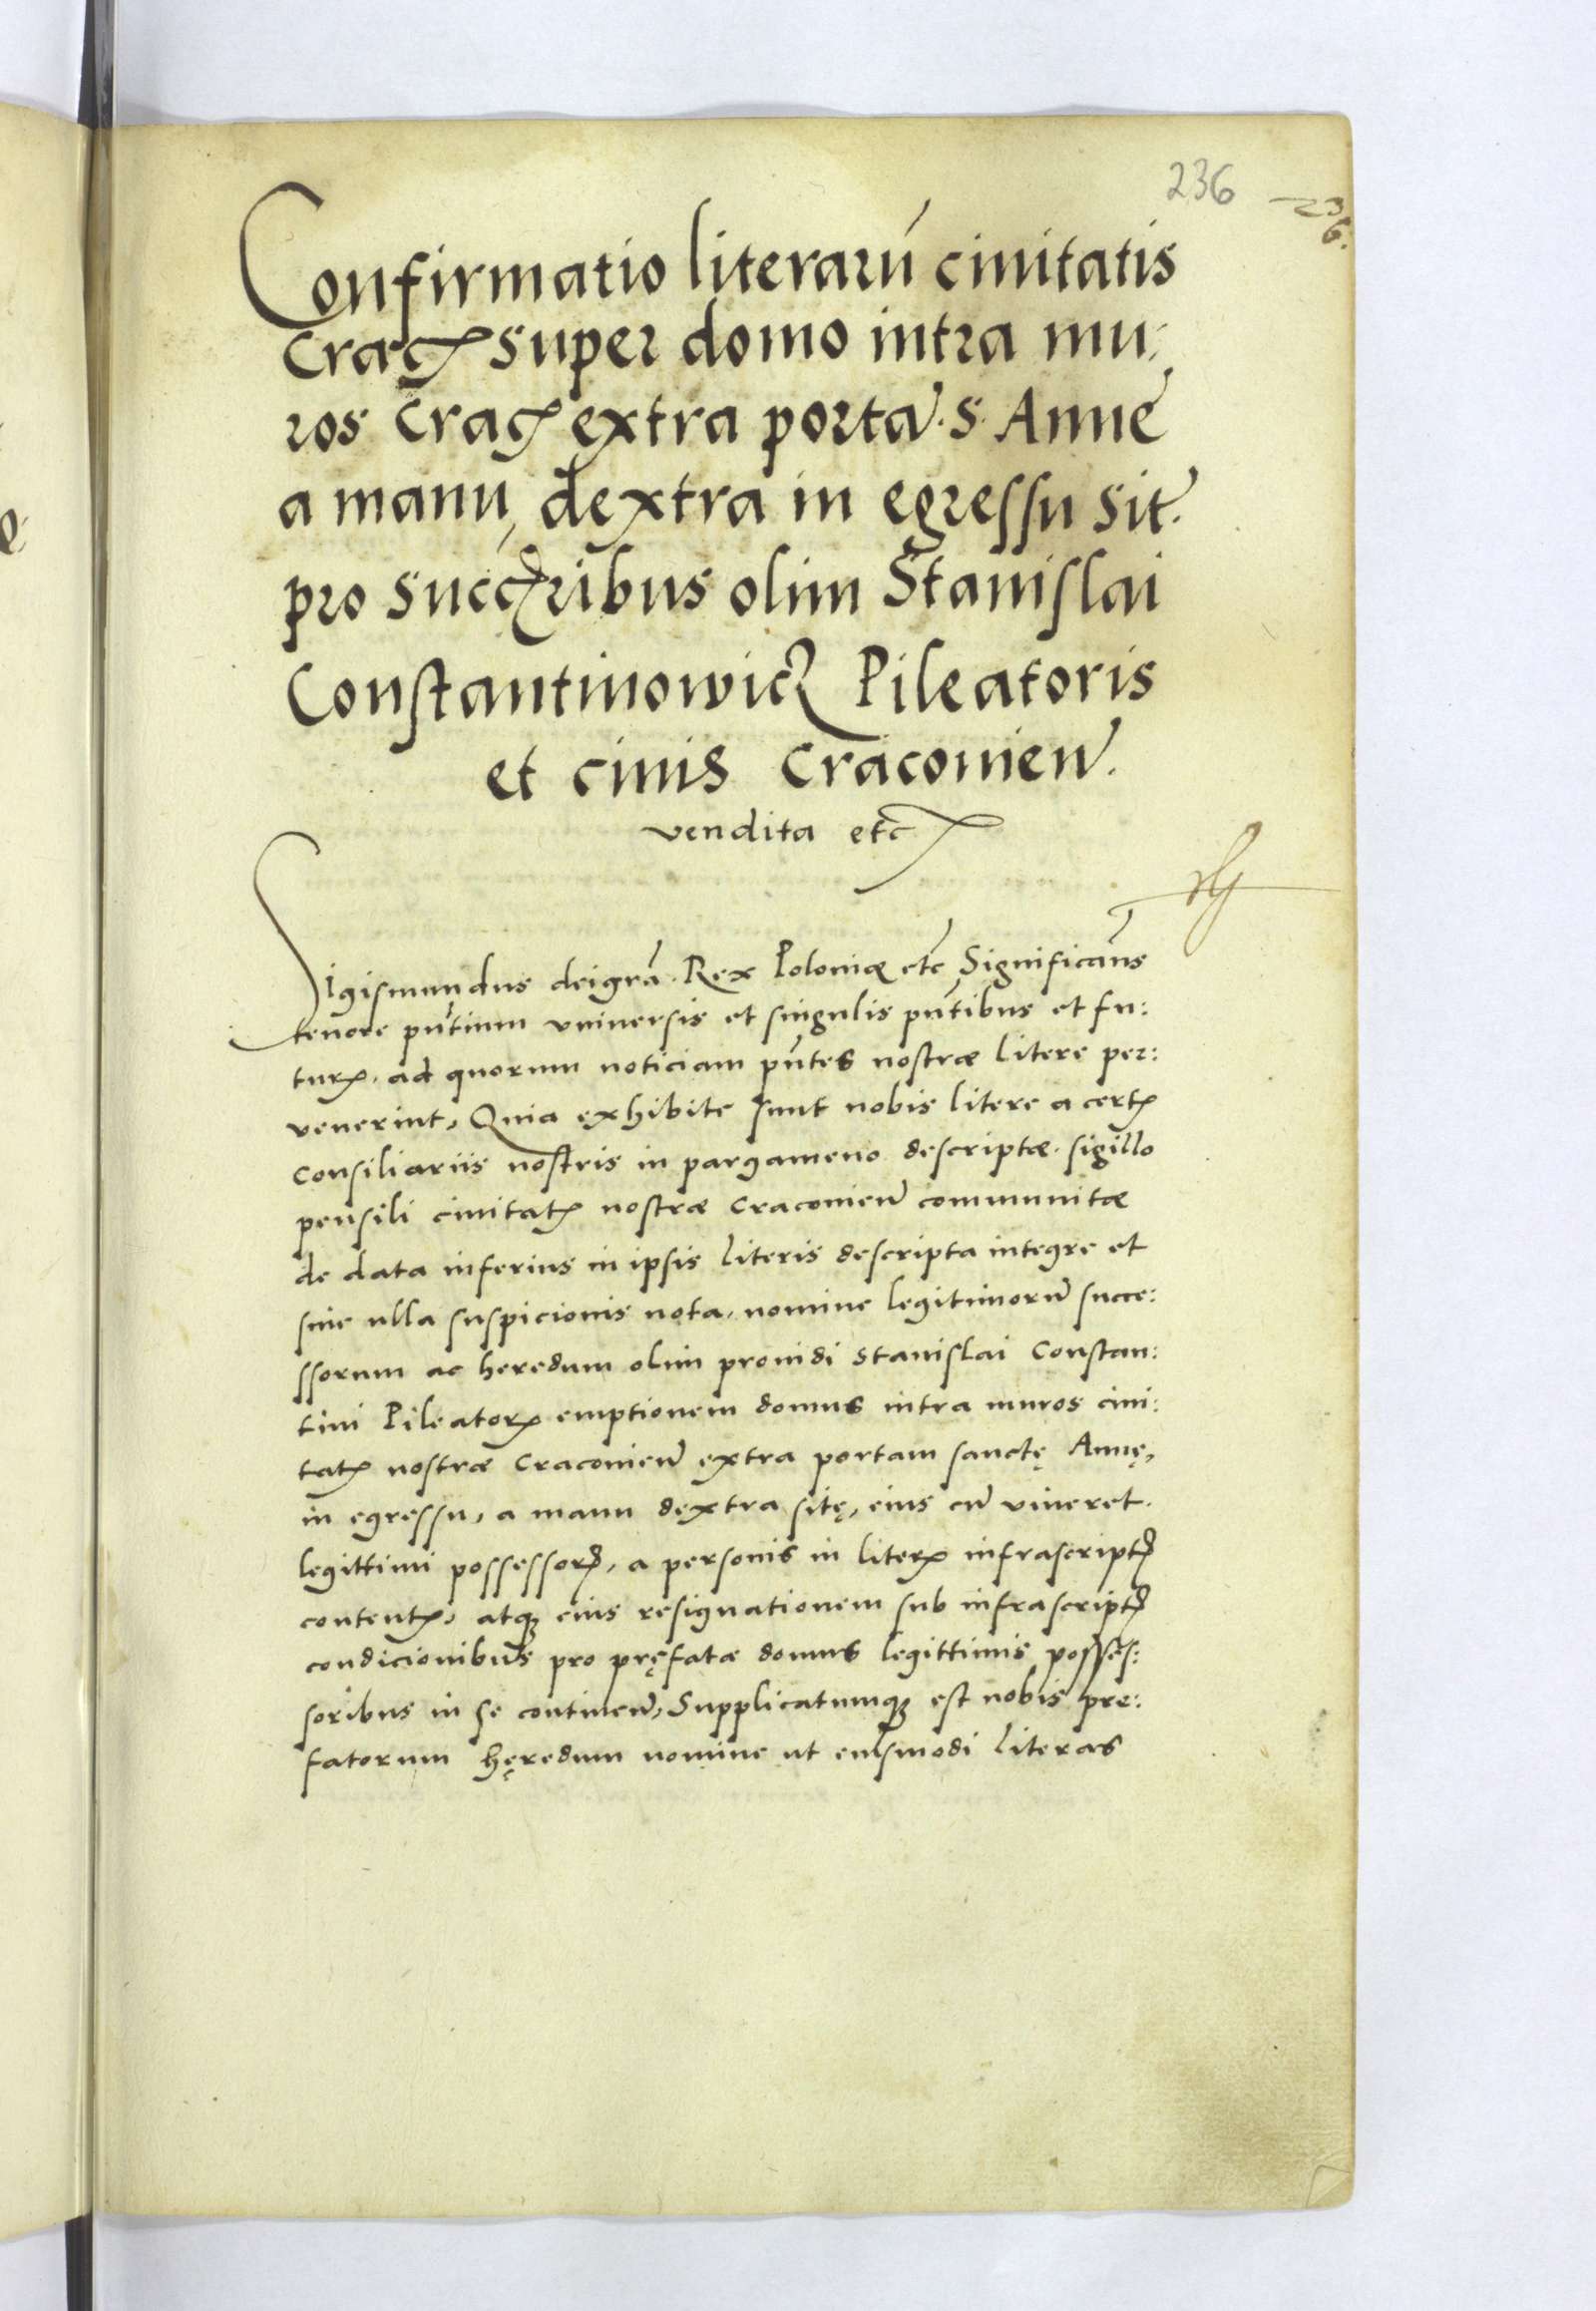 236
236.
Confirmatio literarū ciuitatis
Cracꝭ super domo intra mu:
ros Cracꝭ extra portā. s. Anne
a manu dextra in egressu sit.
pro succꝭribus olim Stanislai
Constantinowicz Pileatoris
et ciuis Cracouien̄.
vendita etc
Sigismundus deigrā. Rex Poloniæ etc Significam̄s
tenore pn̄tium vniuersis et singulis pn̄tibus et fu:
turꝭ. ad quorum noticiam pn̄tes nostræ litere per:
uenerint, Quia exhibite sunt nobis litere a certꝭ
consiliariis nostris in pargameno descriptæ. sigillo
pensili ciuitatꝭ nostræ Cracouien̄ communitæ
de data inferius in ipsis literis descripta integre et
sine ulla suspicionis nota, nomine legitimorū succe:
ssorum ac heredum olim prouidi Stanislai Constan:
tini Pileatorꝭ emptionem domus intra muros ciui:
tatꝭ nostræ Cracouien̄ extra portam sanctę Annę,
in egressu, a manu dextra sitę, eius cū viueret.
legittimi possessorꝭ, a personis in literꝭ infrascriptꝭ
contentꝭ, atqꝫ eius resignationem sub infrascriptꝭ
condicionibus pro pręfatæ domus legittimis posses:
soribus in se continen̄, Supplicatumqꝫ est nobis pre:
fatorum hęredum nomine ut eiusmodi literas